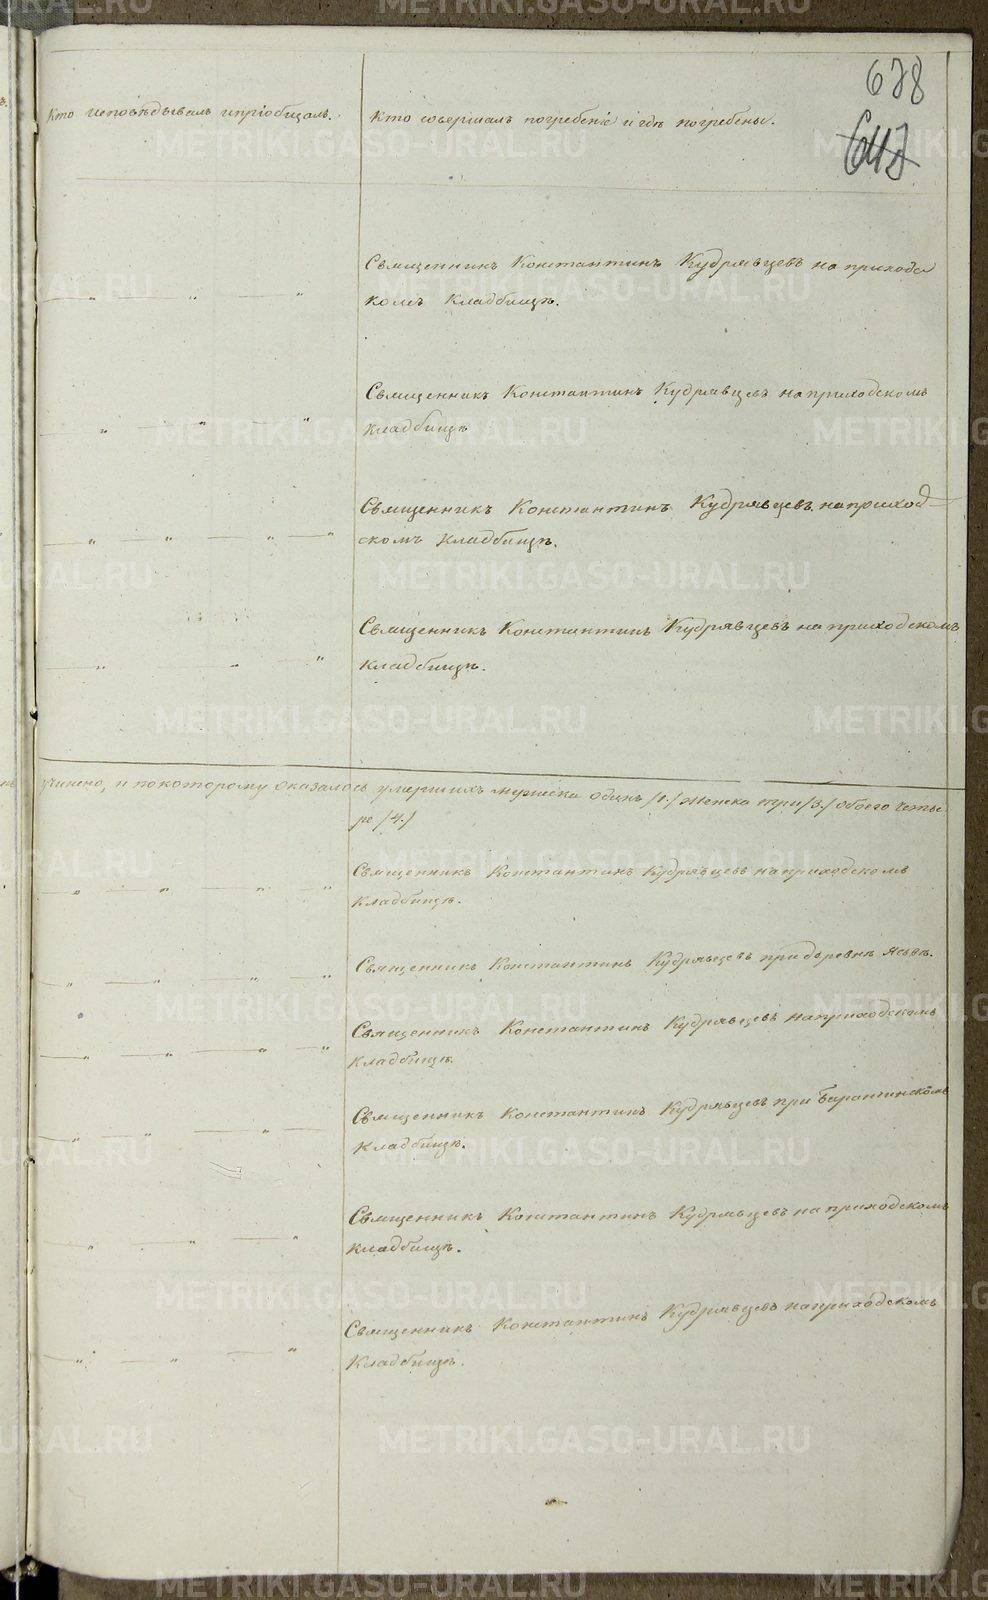 678
647
Кто исповѣдывалъ и пріобщалъ.
Кто совершалъ погребеніе и гдѣ погребены.
Священникъ Константинъ Кудрявцевъ на приход
скомъ кладбищѣ.
Священникъ Константинъ Кудрявцевъ на приходскомъ
кладбищѣ
Священникъ Константинъ Кудрявцевъ на приход
скомъ кладбищѣ.
Священникъ Константинъ Кудрявцевъ на приходскомъ
кладбищѣ.
учинено, и по которому оказалось умершихъ мужеска одинъ /1./ женска три /3./ обоего четы
ре /4./
Священникъ Константинъ Кудрявцевъ на приходскомъ
кладбищѣ.
Священникъ Константинъ Кудрявцевъ при деревнѣ Ясьвѣ.
Священникъ Константинъ Кудрявцевъ на приходскомъ
кладбищѣ.
Священникъ Константинъ Кудрявцевъ при Баранчинскомъ
кладбищѣ.
Священникъ Константинъ Кудрявцевъ на приходскомъ
кладбищѣ.
Священникъ Константинъ Кудрявцевъ на приходскомъ
кладбищѣ.
METRIKI.GASO-URAL.RU